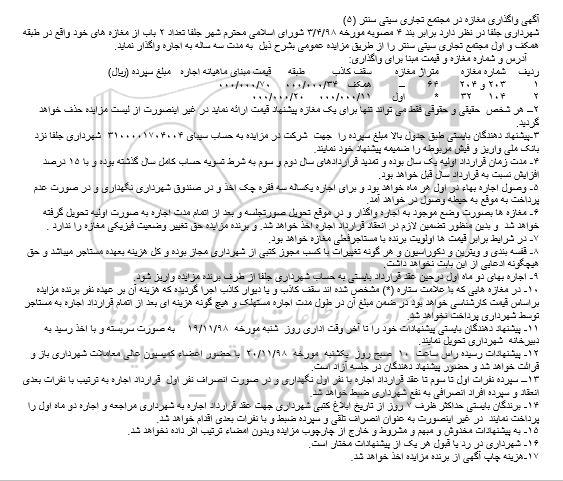 آگهی واگذاری مغازه در مجتمع تجاری سیتی سنتر (۵)
شهرداری جلفا در نظر دارد برابر بند ۴ مصوبه مورخه ۳/۴/۹۸ شورای اسلامی محترم شهر جلفا تعداد ۲ باب از مغازه های خود واقع در طبقه
همکف و اول مجتمع تجاری سیتی سنتر را از طریق مزایده عمومی بشرح ذیل به مدت سه ساله به اجاره واگذار نماید.
آدرس و شماره مغازه و قیمت مبنا برای واگذاری:
ردیف شماره مغازه متراژ مغازه سقف کاذب طبقه قیمت مبنای ماهیانه اجاره مبلغ سپرده (ریال)
۱ ۲۰۳ و ۲۰۴ ۶۴ – همکف ۳۴/۰۰۰/۰۰۰ ۷۰/۰۰۰/۰۰۰
۲ ۱۰۴ ۳۲ * اول ۱۱/۰۰۰/۰۰۰ ۲۰/۰۰۰/۰۰۰
۲– هر شخص حقیقی و حقوقی فقط می تواند تنها برای یک مغازه پیشنهاد قیمت ارائه نماید در غیر اینصورت از لیست مزایده حذف خواهد
گردید.
۳–پیشنهاد دهندگان بایستی طبق جدول بالا مبلغ سپرده را جهت شرکت در مزایده به حساب سیبای ۳۱۰۰۰۰۱۷۰۴۰۰۴ شهرداری جلفا نزد
بانک ملی واریز و فیش مربوطه را ضمیمه پیشنهاد خود نمایند.
۴– مدت زمان قرارداد اولیه یک سال بوده و تمدید قراردادهای سال دوم و سوم به شرط تسویه حساب کامل سال گذشته بوده و با ۱۵ درصد
افزایش نسبت به قرارداد سال قبل خواهد بود.
۵– وصول اجاره بهاء در اول هر ماه خواهد بود و برای اجاره یکساله سه فقره چک اخذ و در صندوق شهرداری نگهداری و در صورت عدم
پرداخت به موقع به حیطه وصول در خواهد آمد.
۶– مغازه ها بصورت وضع موجود به اجاره واگذار و در موقع تحویل صورتجلسه و بعد از اتمام مدت اجاره به صورت اولیه تحویل گرفته
خواهد شد و بدین منظور تضمین لازم در انعقاد قرارداد اجاره اخذ خواهد شد. و برنده مزایده حق تغییر وضعیت فیزیکی مغازه را ندارد.
۷– در شرایط برابر قیمت ها اولویت برنده با مستاجرفعلی مغازه خواهد بود.
۸– قفسه بندی و ویترین و دکوراسیون و هر گونه تغییرات با کسب مجوز کتبی از شهرداری مجاز بوده و کل هزینه بعهده مستاجر میباشد و حق
هیچگونه ادعایی از این بابت نخواهد داشت.
۹– اجاره بهای دو ماه اول درحین عقد قرارداد بایستی به حساب شهرداری جلفا از طرف برنده مزایده واریز شود.
۱۰– در مغازه هایی که با علامت ستاره (*) مشخص شده اند سقف کاذب و یا دیوار کاذب اجرا گردیده که هزینه آن بر عهده نفر برنده مزایده
براساس قیمت کارشناسی خواهد بود در ضمن مبلغ آن در طول مدت اجاره مستهلک و هیچ گونه هزینه ای بعد از اتمام قرارداد اجاره به مستاجر
توسط شهرداری پرداخت نخواهد شد.
۱۱– پیشنهاد دهندگان بایستی پیشنهادات خود را تا آخر وقت اداری روز شنبه مورخه ۱۹/۱۱/۹۸ به صورت سربسته و با اخذ رسید به
دبیرخانه شهرداری تحویل نمایند.
۱۲– پیشنهادات رسیده راس ساعت ۱۰ صبح روز یکشنبه مورخه ۲۰/۱۱/۹۸ با حضور اعضاء کمیسیون عالی معاملات شهرداری باز و
قرائت خواهد شد و حضور پیشنهاد دهندگان در جلسه آزاد است.
۱۳– سپرده نفرات اول تا سوم تا عقد قرارداد اجاره با نفر اول نگهداری و در صورت انصراف نفر اول قرارداد اجاره به ترتیب با نفرات بعدی
انعقاد و سپرده افراد انصرافی به نفع شهرداری ضبط خواهد شد.
۱۴– برندگان بایستی حداکثر ظرف ۷ روز از تاریخ ابلاغ کتبی شهرداری جهت عقد قرارداد اجاره به شهرداری مراجعه و اجاره دو ماه اول را
پرداخت نمایند در غیر اینصورت به عنوان انصراف تلقی و سپرده ضبط و با نفرات بعدی اقدام خواهد شد.
۱۵– به پیشنهادات مخدوش و مبهم و مشروط و خارج از چارچوب مزایده وبدون امضاء ترتیب اثر داده نخواهد شد.
۱۶– شهرداری در رد یا قبول هر یک از پیشنهادات مختار است.
۱۷–هزینه چاپ آگهی از برنده مزایده اخذ خواهد شد.